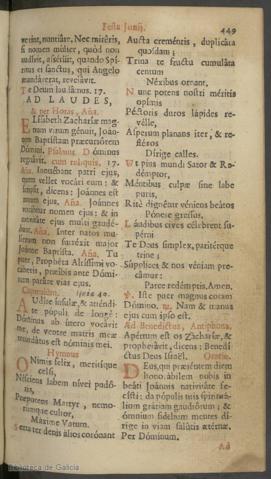 Festa Junij.
449
verint, nuntiare. Nec mireris,
si novem mulier, quòd non
audisti, asserit, quando Spiri-
tus est sanctus, qui Angelo
mandaverat, revelavit.
Te Deum laudamus. 17.
AD LAUDES,
& per Horas, Aña.
ELisabeth Zachariæ mag-
num virum genuit, Joán-
nem Baptistam præcursórem
Dómini. Psalmus. Dóminus
regnávit, cum reliquis. 17.
Aña. Innuébant patri ejus,
quem vellet vocári eum: &
scripsit, dicens: Joánnes est
nomen ejus. Aña. Joánnes
vocábitur nomen ejus: & in
nativitáte ejus multi gaudé-
bunt. Aña. Inter natos mu-
lierum non surréxit major
Joánne Baptista. Aña. Tu
puer, Prophéta Altíssimi vo-
cáberis, præíbis ante Dómi-
num paráre vias ejus.
Capitulum. Isaiæ 49.
AUdíte insulæ, & atténdi-
te pópuli de longè:
Dóminus ab útero vocávit
me, de ventre matris meæ
recordátus est nóminis mei.
Hymnus
ONimis felix, meritíque
celsi,
Nésciens labem nívei pudó-
ris,
Præpotens Martyr, nemo-
rúmque cultor,
Máxime Vatum.
Serta ter denis álios corónant
Aucta creméntis, duplicáta
quosdam;
Trina te fructu cumuláta
centum
Néxibus ornant.
Nunc potens nostri méritis
opímis
Péctoris duros lápides re-
vélle,
Asperum planans iter, & re-
fléxos
Dírige calles.
Ut pius mundi Sator & Re-
démptor,
Méntibus culpæ sine labe
puris,
Ritè dignétur véniens beátos
Pónere gressus.
Láudibus cives célebrent su-
périi
Te Deus simplex, paritérque
trine;
Súpplices & nos véniam pre-
cámur:
Parce redémptis. Amen.
℣. Iste puer magnus coram
Dómino. ℟. Nam & manus
ejus cum ipso est.
Ad Benedictus, Antíphona.
Apértum est os Zachariæ, &
prophetávit, dicens: Benedí-
ctus Deus Israël. Oratio.
DEus, qui præséntem diem
honorábilem nobis in
beáti Joánnis nativitáte fe-
císti: da pópulis tuis spirituá-
lium grátiam gaudiórum; &
ómnium fidélium mentes dí-
rige in viam salútis ætérnæ.
Per Dóminum.
Ad
Biblioteca de Galicia